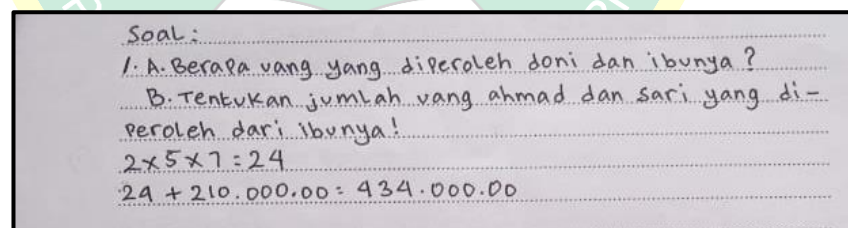 Soal:
1. A. Berapa uang yang diperoleh doni dan ibunya?
B. Tentukan jumlah uang ahmad dan sari yang di-
peroleh dari ibunya!
2x5x7 = 24
24 + 210.000.00 = 434.000.00